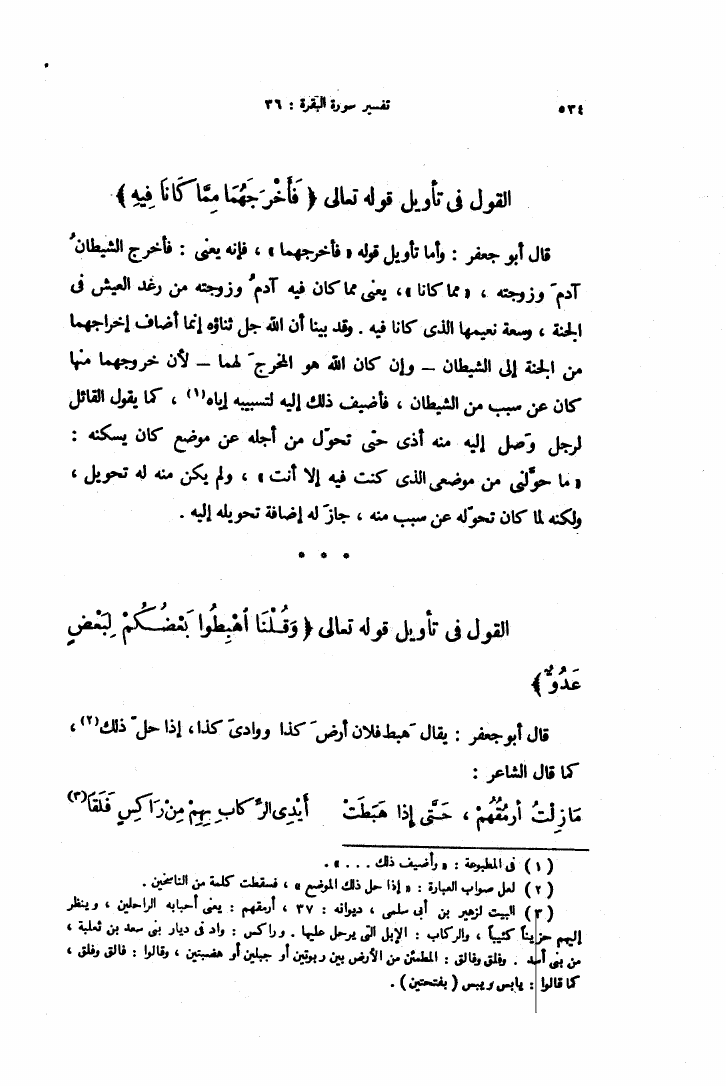 ٥٣٤
تفسير سورة البقرة : ٣٦
القول فى تأويل قوله تعالى ﴿ فَأَخْرَجَهُمَا مِمَّا كَانَا فِيهِ ﴾
قال أبو جعفر : وأما تأويل قوله « فأخرجهما » ، فإنه يعنى : فأخرج الشيطانُ
آدمَ وزوجته ، « مما كانا » ، يعنى مما كان فيه آدمُ وزوجته من رغد العيش فى
الجنة ، وسعة نعيمها الذى كانا فيه . وقد بينا أن الله جل ثناؤه إنما أضاف إخراجهما
من الجنة إلى الشيطان – وإن كان الله هو المخرجَ لهما – لأن خروجهما منها
كان عن سبب من الشيطان ، فأضيف ذلك إليه لتسبيبه إياه(١) ، كما يقول القائل
لرجل وَصل إليه منه أذى حتى تحوّل من أجله عن موضع كان يسكنه :
« ما حوَّلنى من موضعى الذى كنت فيه إلا أنت » ، ولم يكن منه له تحويل ،
ولكنه لما كان تحوّله عن سبب منه ، جازَ له إضافة تحويله إليه .
* * *
القول فى تأويل قوله تعالى ﴿ وَقُلْنَا ٱهْبِطُوا بَعْضُكُمْ لِبَعْضٍ
عَدُوٌّ ﴾
قال أبو جعفر : يقال هَبط فلان أرضَ كذا وواديَ كذا ، إذا حلّ ذلك(٢) ،
كما قال الشاعر :
مَازِلْتُ أرمُقُهُمْ ، حَتَّى إذا هَبَطَتْ أَيْدِى الرِّكَابِ بِهِمْ مِنْ رَاكِسٍ فَلَقَا(٣)
( ١ ) فى المطبوعة : « وأضيف ذلك . . . » .
( ٢ ) لعل صواب العبارة : « إذا حل ذلك الموضع » ، فسقطت كلمة من الناسخين .
( ٣ ) البيت لزهير بن أبى سلمى ، ديوانه : ٣٧ ، أرمقهم : يعنى أحبابه الراحلين ، وينظر
إليهم حزيناً كئيباً ، والركاب : الإبل التى يرحل عليها . وراكس : واد فى ديار بنى سعد بن ثعلبة ،
من بنى أسد . وفلق وفالق : المطمئن من الأرض بين ربوتين أو جبلين أو هضبتين ، وقالوا : فالق وفلق ،
كما قالوا : يابس ويبس ( بفتحتين ) .